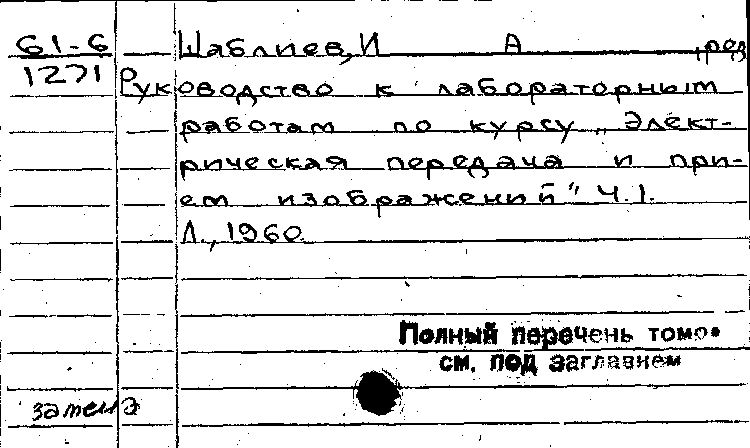 61-6 Шаблиев, И А ,ред
1271 Руководство к лабораторным
работам по курсу „Элект-
рическая передача и при-
ем изображений" Ч.1.
Л., 1960.
Полный перечень томо
см. под заглавием
замена